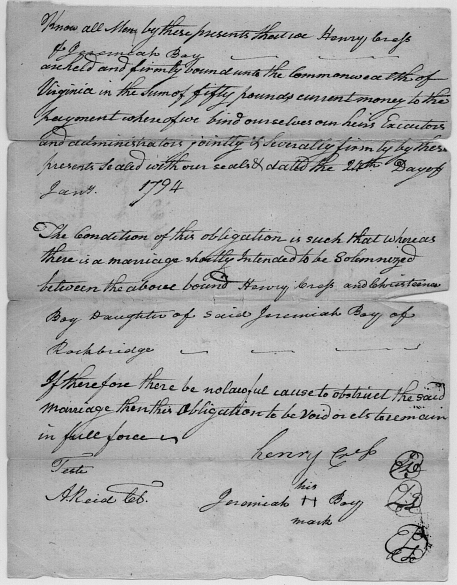 Know all Men by these presents that we Henry Cress
& Jeremiah Boy
are held and firmly bound unto the Commonwealth of
Virginia in the sum of fifty pounds current money to the
payment whereof we bind ourselves our heirs Executors
and administrators jointly & severally firmly by these
presents sealed with our seals & dated the 24th Day of
Jany. 1794
The Condition of this obligation is such that whereas
there is a marriage shortly intended to be Solemnized
between the above bound Henry Cress and Christeena
Boy Daughter of said Jeremiah Boy of
Rockbridge
If therefore there be no lawful cause to obstruct the said
marriage then this Obligation to be void or els to remain
in full force
henry Cress
Teste
his
A Reid
Jeremiah H Boy
mark